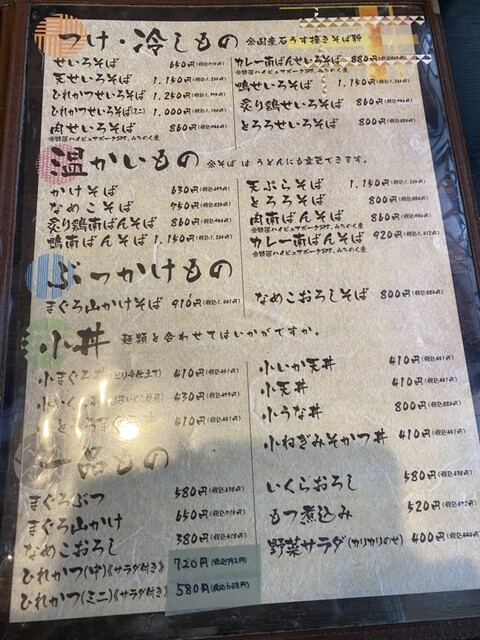 つけ・冷しもの ※国産石うす挽きそば粉
せいろそば 650円(税込715円)
天せいろそば 1.150円
ひれかつせいろそば 1.250円
ひれかつせいろそば(ミニ) 1,000円
肉せいろそば 860円
カレー南ばんせいろそば 880円
鴨せいろそば 1.150円
炙り鶏せいろそば 860円
とろろせいろそば 800円
温かいもの ※そばはうどんにも変更できます。
かけそば 630円
なめこそば 750円
炙り鶏南ばんそば 860円
鴨南ばんそば 1.150円
天ぷらそば 1.150円
とろろそば 800円
肉南ばんそば 860円
カレー南ばんそば 920円(税込1,012円)
ぶっかけもの
まぐろ山かけそば 910円(税込1.001円)
なめこおろしそば 800円(税込880円)
小丼 麺類と合わせてはいかがですか。
小まぐろ丼 410円(税込451円)
430円
410円(税込451円)
小いか天丼 410円(税込451円)
小天丼 410円(税込451円)
小うな丼 800円(税込880円)
小ねぎみそかつ丼 410円(税込451円)
一品もの
まぐろぶつ 580円(税込638円)
まぐろ山かけ 650円(税込715円)
なめこおろし 380円(税込418円)
ひれかつ(中)《サラダ付き》 720円(税込792円)
ひれかつ(ミニ)《サラダ付き》 580円(税込638円)
いくらおろし 580円(税込638円)
もつ煮込み 520円(税込572円)
野菜サラダ(カリカリのせ) 400円(税込440円)